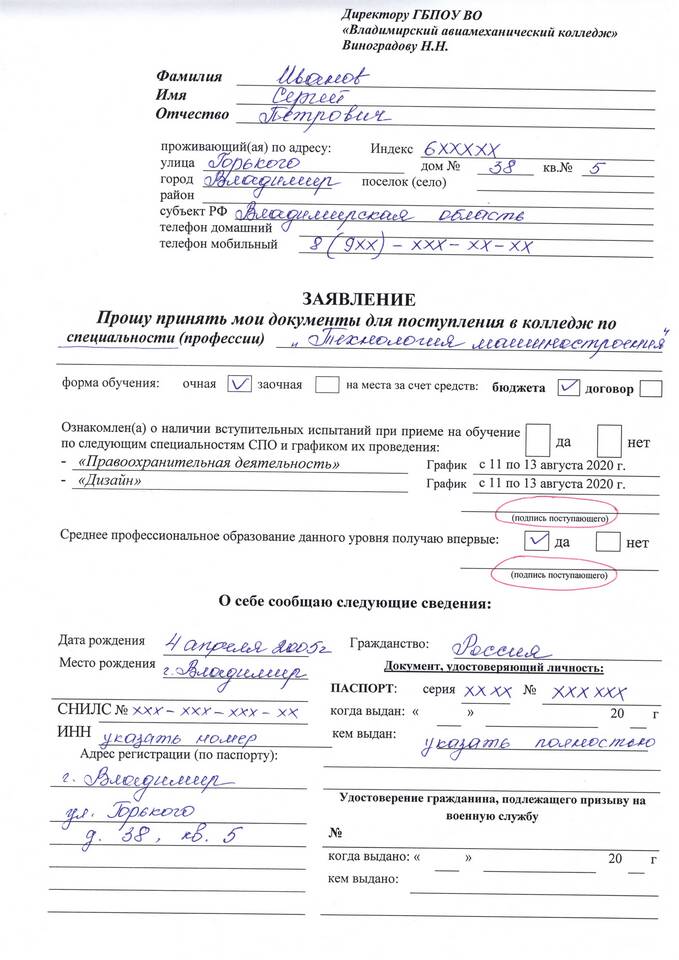 Директору ГБПОУ ВО
«Владимирский авиамеханический колледж»
Виноградову Н.Н.
Фамилия Иванов
Имя Сергей
Отчество Петрович
проживающий(ая) по адресу: Индекс 6XXXXX
улица Горького дом № 38 кв.№ 5
город Владимир поселок (село)
район
субъект РФ Владимирская область
телефон домашний
телефон мобильный 8 (9XX) - XXX - XX - XX
ЗАЯВЛЕНИЕ
Прошу принять мои документы для поступления в колледж по
специальности (профессии) „Технология машиностроения"
форма обучения: очная ✓ заочная на места за счет средств: бюджета ✓ договор
Ознакомлен(а) о наличии вступительных испытаний при приеме на обучение
по следующим специальностям СПО и графиком их проведения: да нет
- «Правоохранительная деятельность» График с 11 по 13 августа 2020 г.
- «Дизайн» График с 11 по 13 августа 2020 г.
(подпись поступающего)
Среднее профессиональное образование данного уровня получаю впервые: ✓ да нет
(подпись поступающего)
О себе сообщаю следующие сведения:
Дата рождения 4 апреля 2005г Гражданство: Россия
Место рождения г. Владимир Документ, удостоверяющий личность:
ПАСПОРТ: серия XX XX № XXX XXX
СНИЛС № XXX - XXX - XXX - XX когда выдан: « » 20 г
ИНН указать номер кем выдан: указать полностью
Адрес регистрации (по паспорту):
г. Владимир
ул. Горького
д. 38, кв. 5
Удостоверение гражданина, подлежащего призыву на
военную службу
№
когда выдано: « » 20 г
кем выдано: